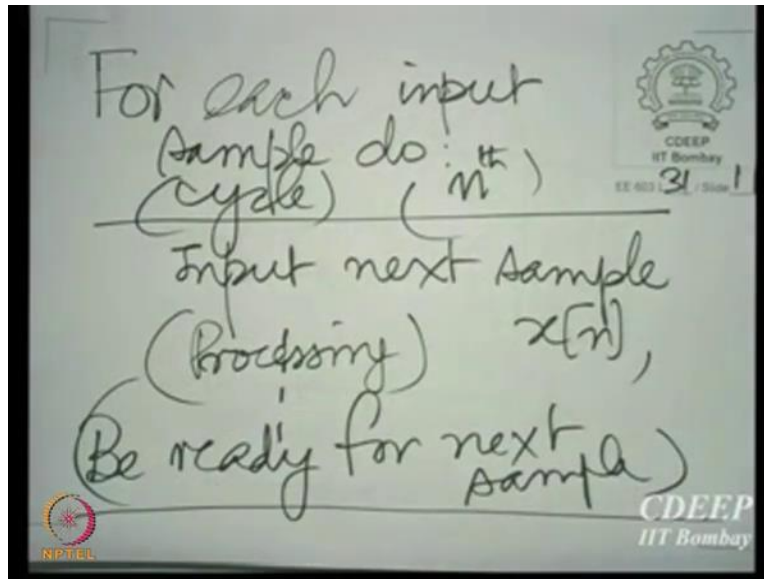 For each input
sample do:
(cycle) (nth)
CDEEP
IIT Bombay
EE 603 L 31 / Slide 1
Input next sample
(Processing) x[n],
(Be ready for next
sample)
NPTEL
CDEEP
IIT Bombay